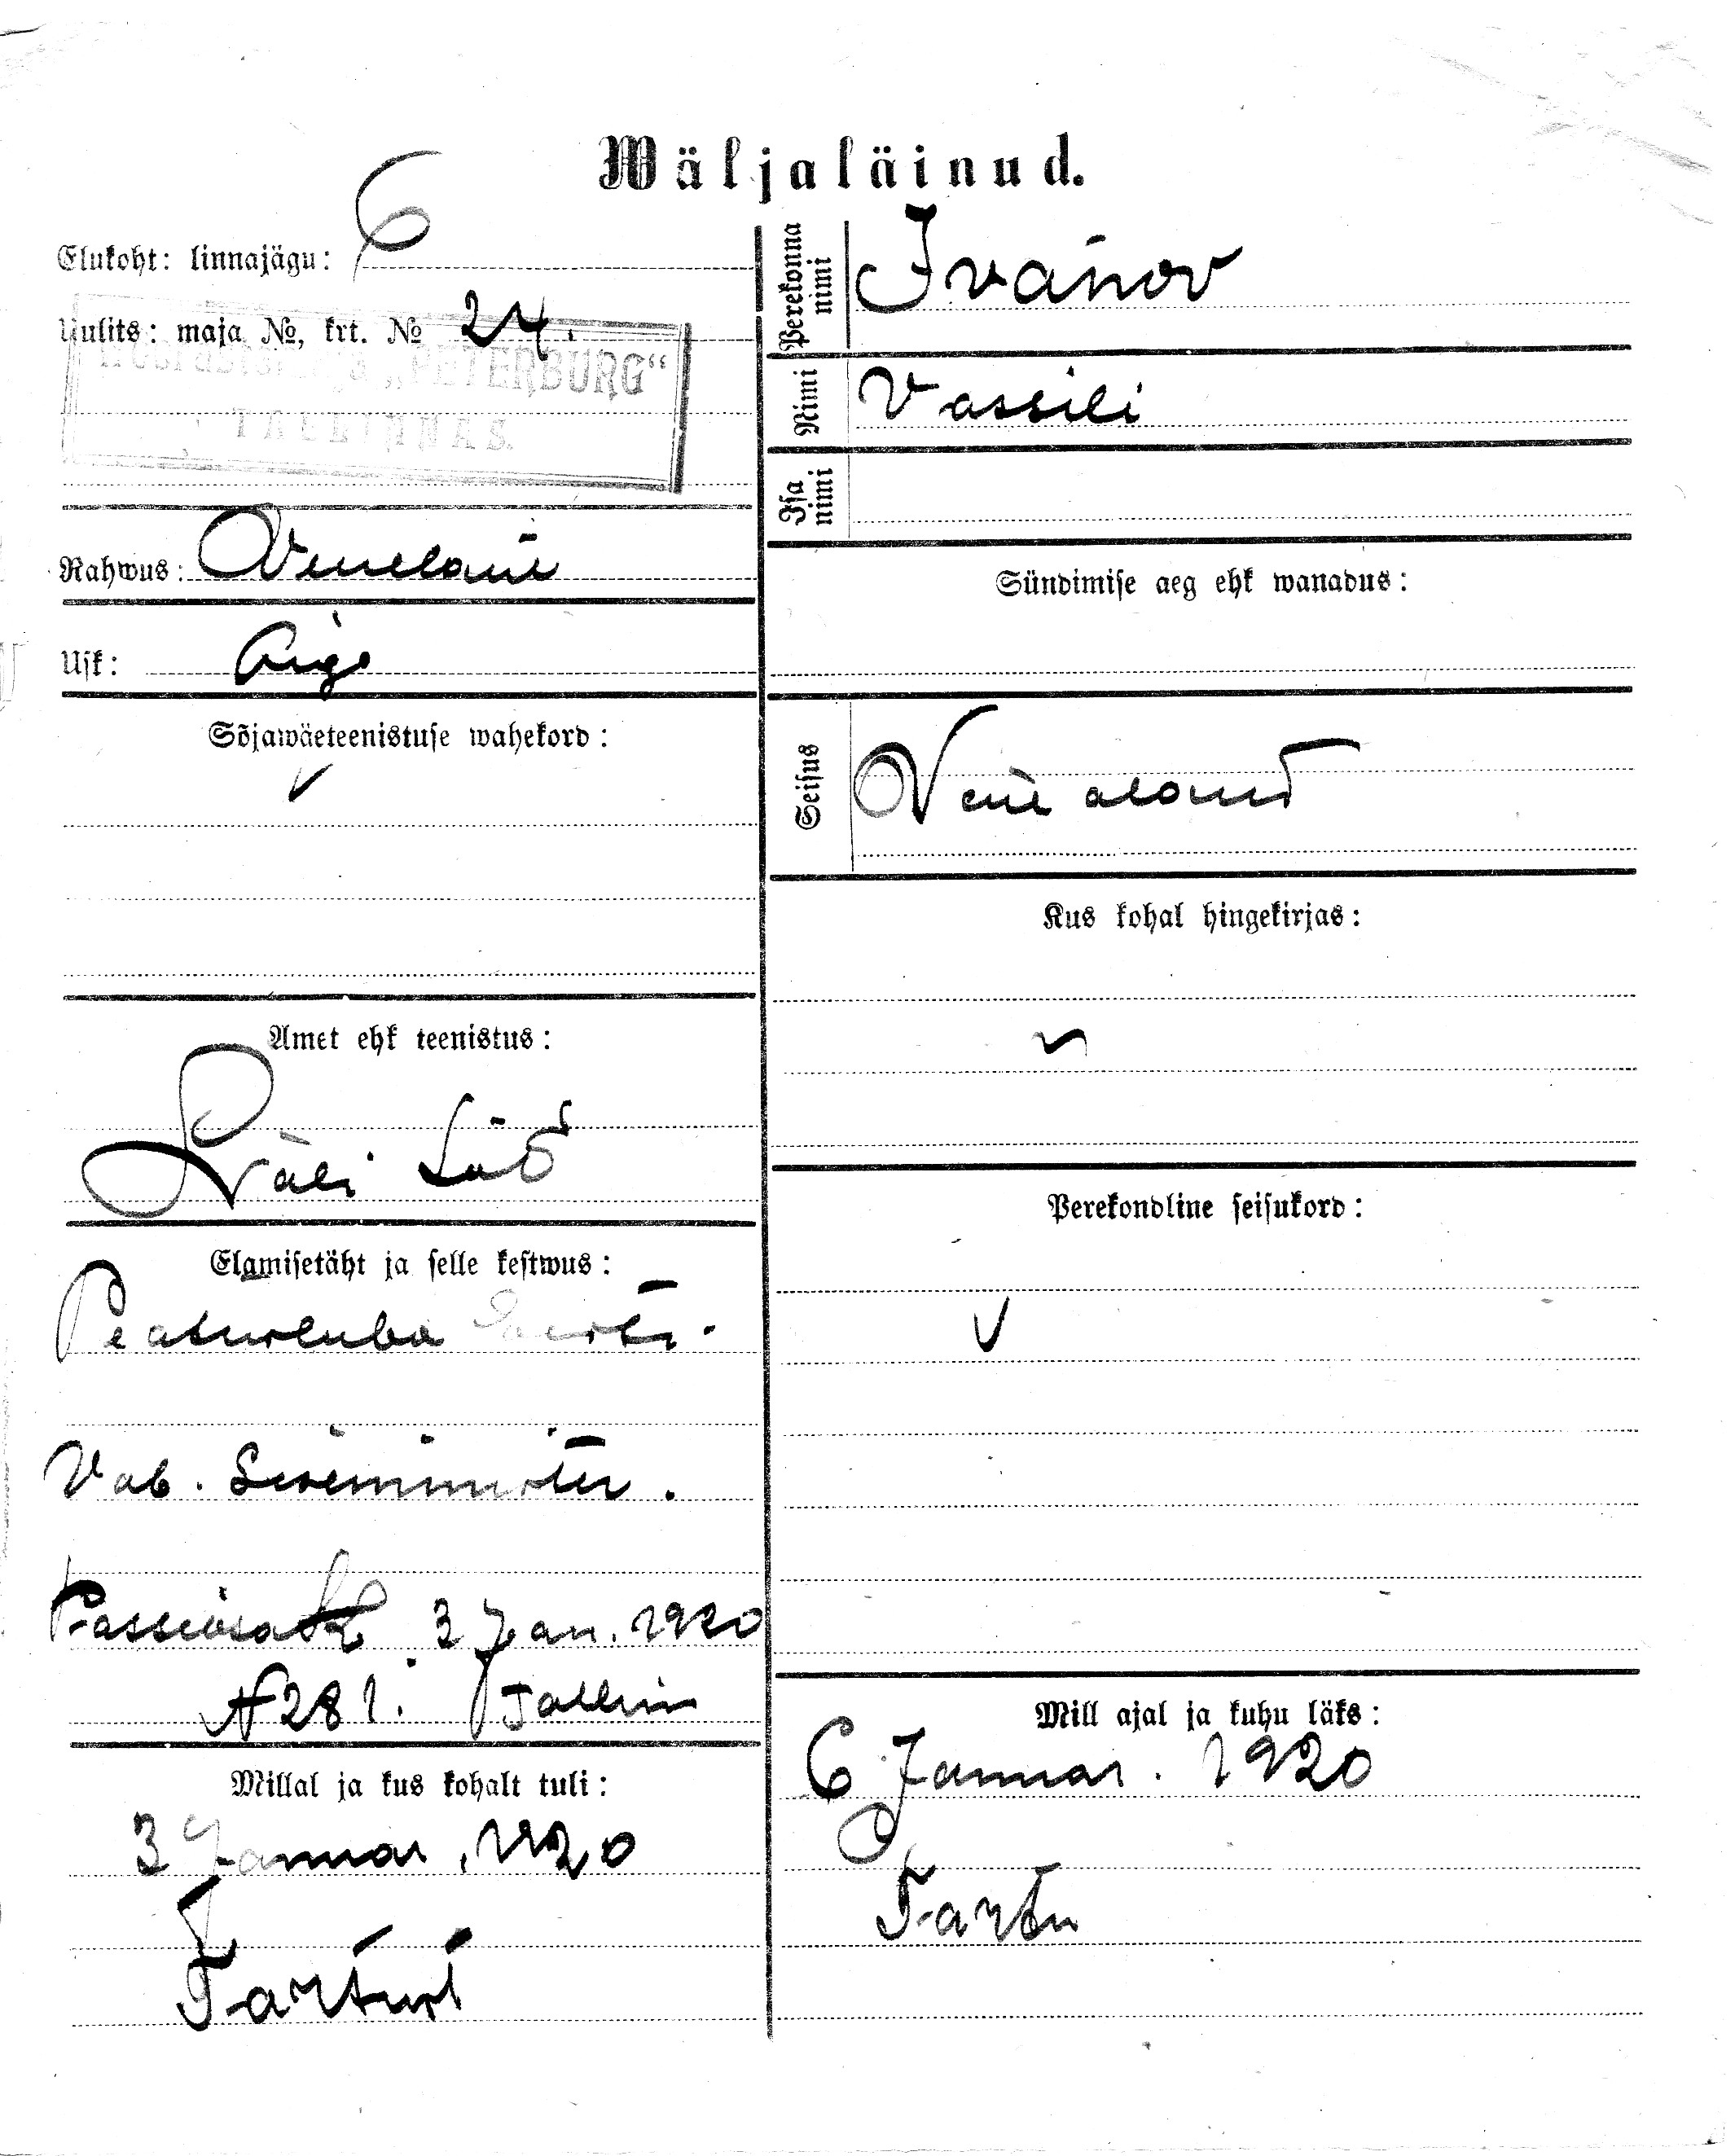 Wäljaläinud.
Elukoht: linnajägu: 6
Uulits: maja №, krt. № 24.
„PETERBURG“
TALLINNAS.
Rahwus: Venelane
Usk: õige
Sõjawäeteenistuse wahekord:
Amet ehk teenistus:
Käsi töö
Elamisetäht ja selle kestwus:
Peatusluba Eesti.
Vab. Siseminister.
Passiosak. 3 Jan. 1920
N 281. Tallinn
Millal ja kus kohalt tuli:
3 Januar, 1920
Tartust
Perekonna nimi Ivanov
Nimi Vassili
Isa nimi
Sündimise aeg ehk wanadus:
Seisus Vene alam
Kus kohal hingekirjas:
Perekondline seisukord:
Mill ajal ja kuhu läks:
6 Januar. 1920
Tartu